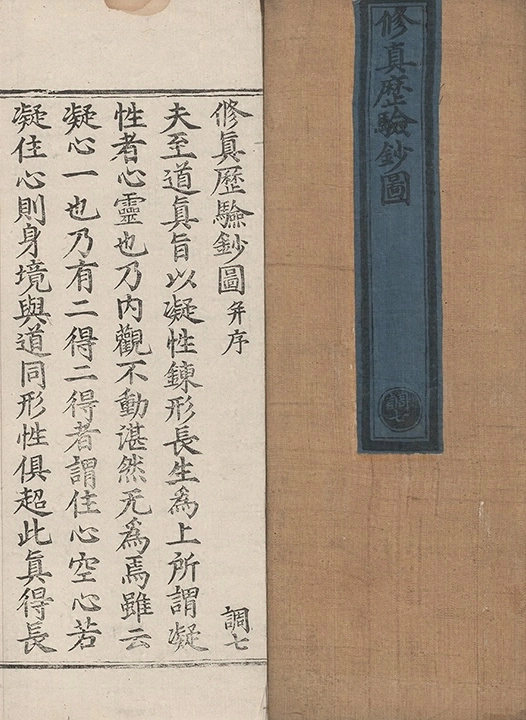 修真歷驗鈔圖
調七
修眞歷驗鈔圖并序
調七
夫至道眞旨以凝性鍊形長生爲上所謂凝
性者心靈也乃內觀不動湛然无爲焉雖云
凝心一也乃有二得二得者謂住心空心若
凝住心則身境與道同形性俱超此眞得長